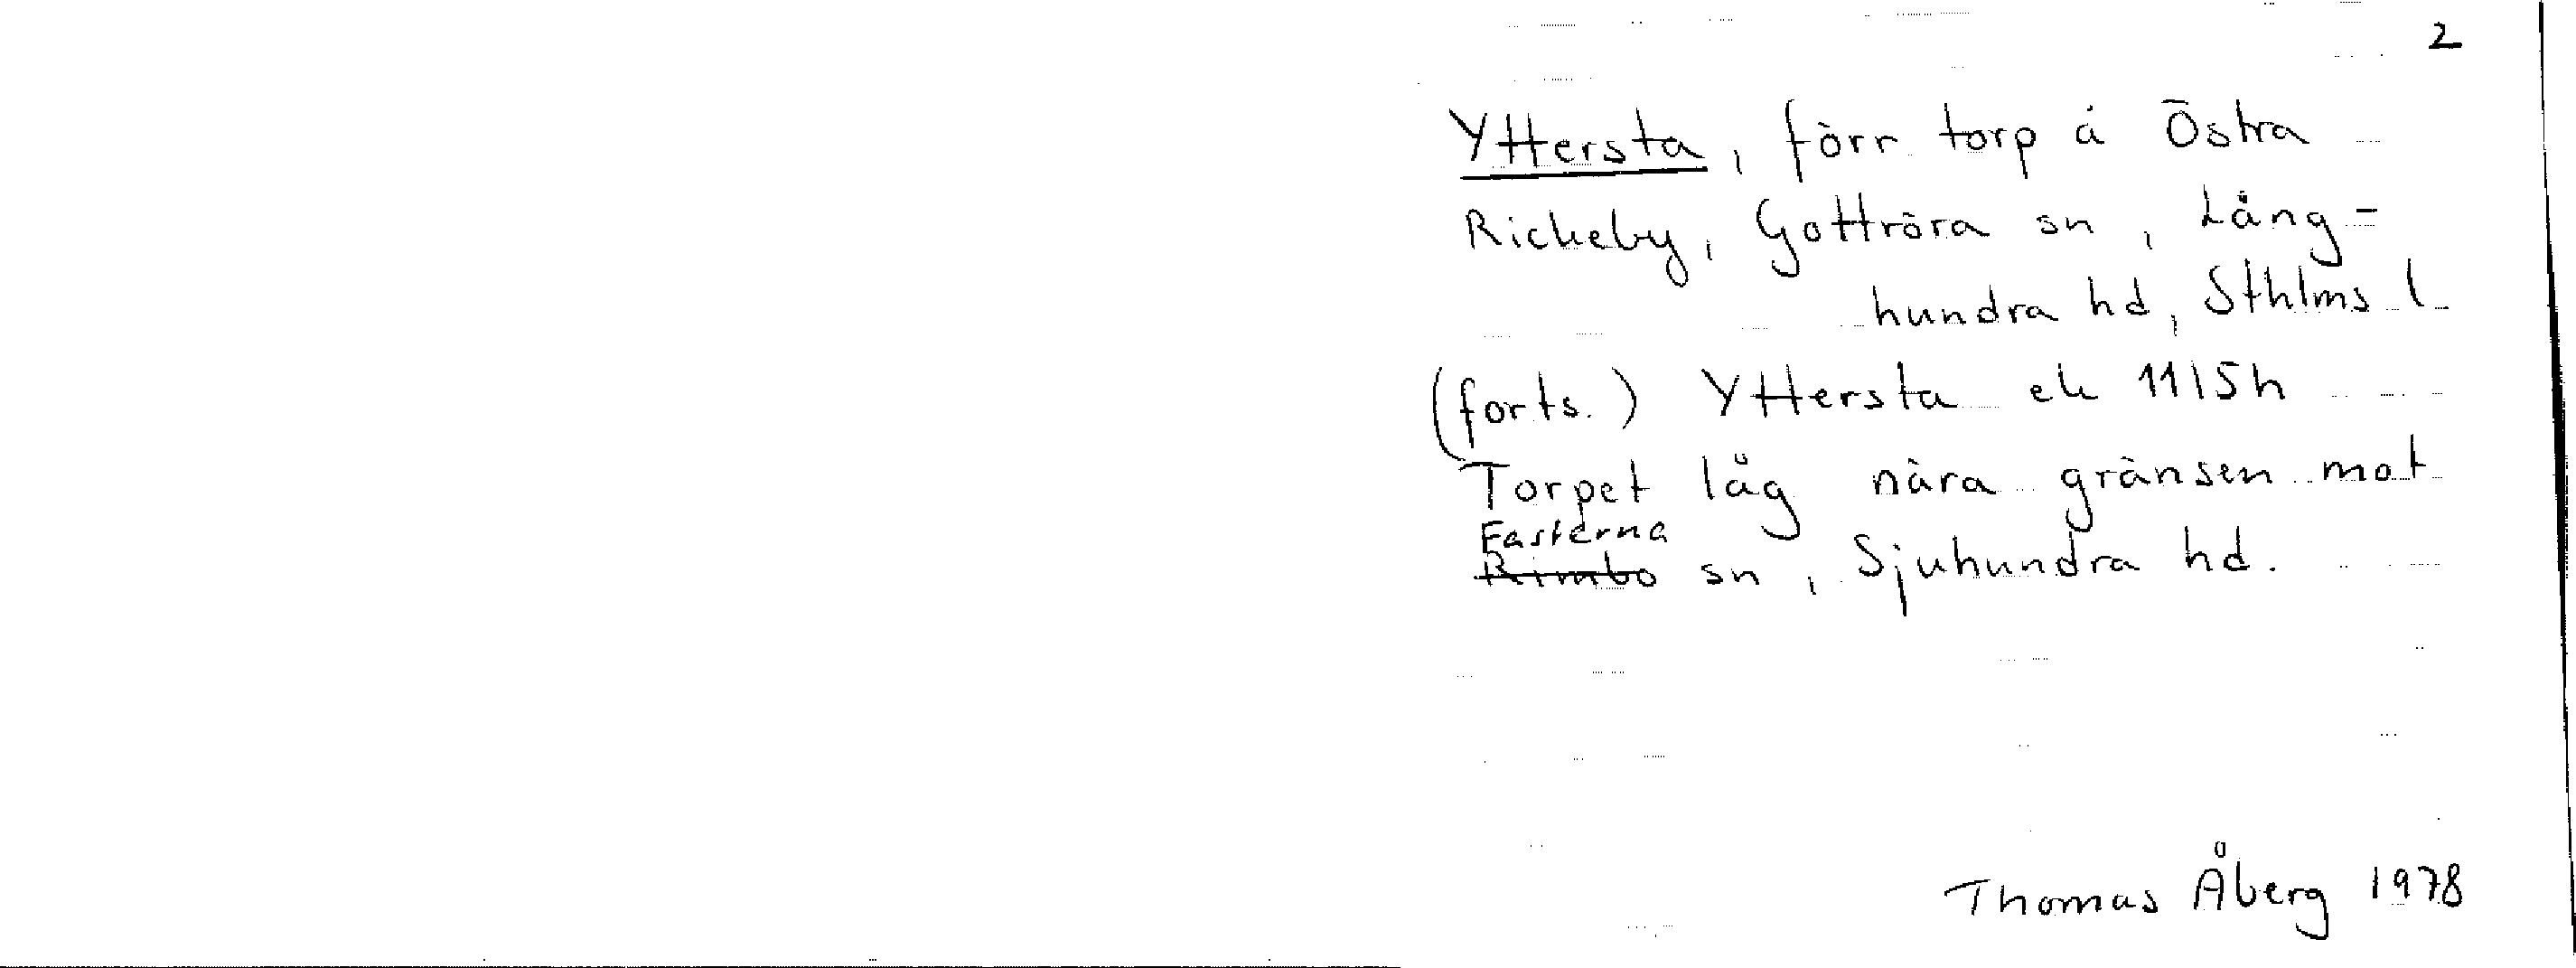 2
Yttersta, förr torp å Östra
Rickeby, Gottröra sn, Lång-
hundra hd, Sthlms l
(forts.) Yttersta ek 11I5h
Torpet låg nära gränsen mot
Fasterna
Rimbo sn, Sjuhundra hd.
Thomas Åberg 1978